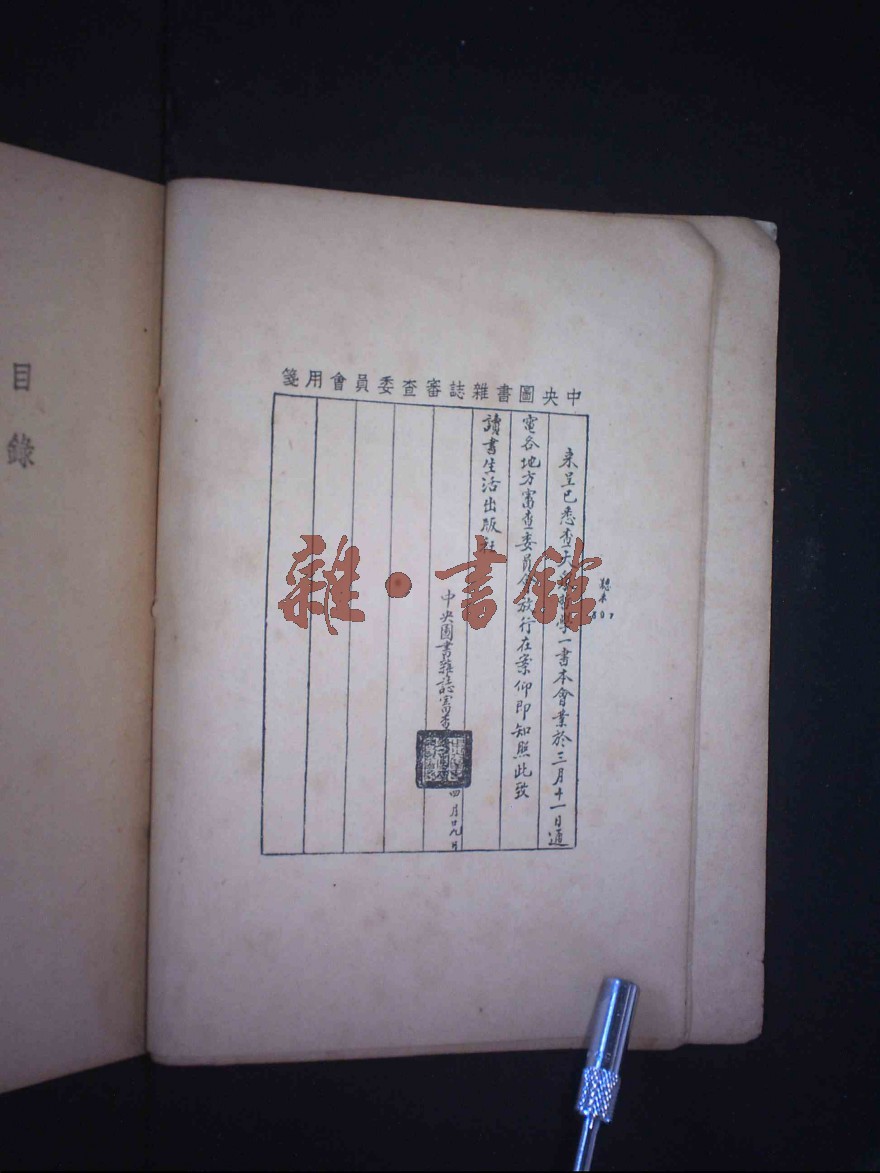 中央圖書雜誌審查委員會用箋
來呈已悉查大眾哲學一書本會業於三月十一日通
電各地方審查委員會放行在案仰即知照此致
讀書生活出版社
中央圖書雜誌審查
四月廿九日
目錄
雜·書館